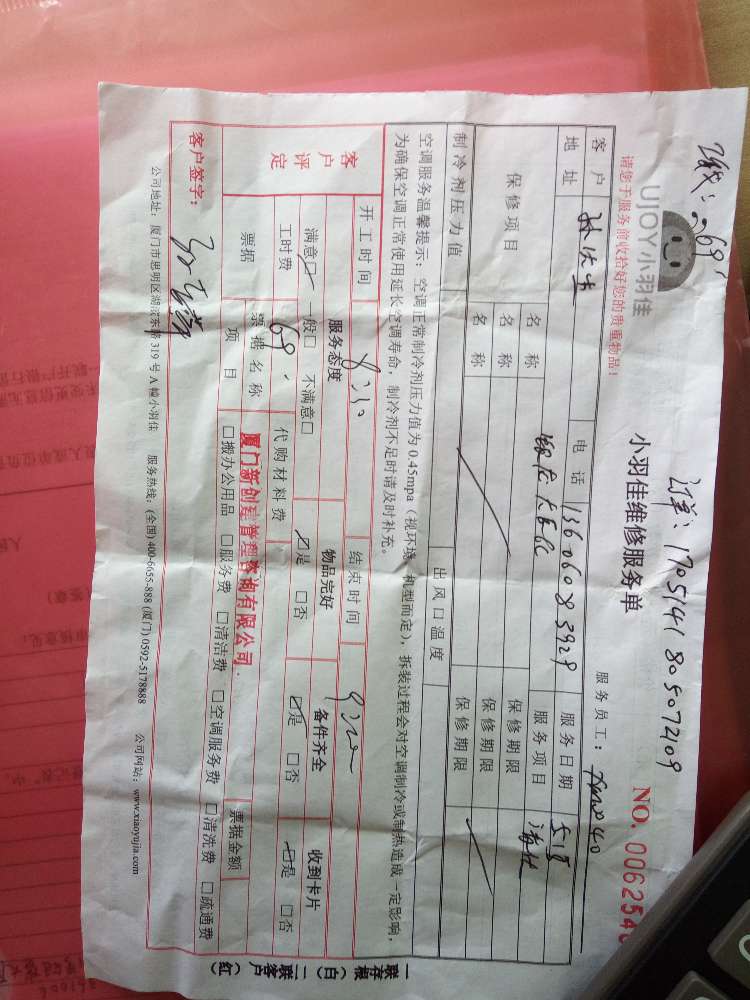 69
订单：1705141805072109
UJOY小羽佳
小羽佳维修服务单
NO. 006254
请您于服务前收拾好您的贵重物品！
服务员工：
客户 电话 13606083929 服务日期 5.18
地址 服务项目 清洗
保修项目 名称 保修期限
名称 保修期限
名称 保修期限
制冷剂压力值 出风口温度
空调服务温馨提示：空调正常制冷剂压力值为 0.45mpa（视环境、机型而定），拆装过程会对空调制冷或制热造成一定影响，
为确保空调正常使用延长空调寿命，制冷剂不足时请及时补充。
开工时间 结束时间
客户评定 服务态度 物品完好 备件齐全 收到卡片
满意☑ 一般□ 不满意□ ☑是 □否 ☑是 □否 ☑是 □否
工时费 69 代购材料费
票据 票据名称 厦门新创建管理咨询有限公司 票据金额
项目 □搬办公用品 □服务费 □清洁费 □空调服务费 □清洗费 □疏通费
客户签字：
公司地址：厦门市思明区湖滨东路 319 号 A 幢小羽佳 服务热线：(全国) 400-6655-888 (厦门) 0592-5178888 公司网站：www.xiaoyujia.com
一联存根（白）二联客户（红）